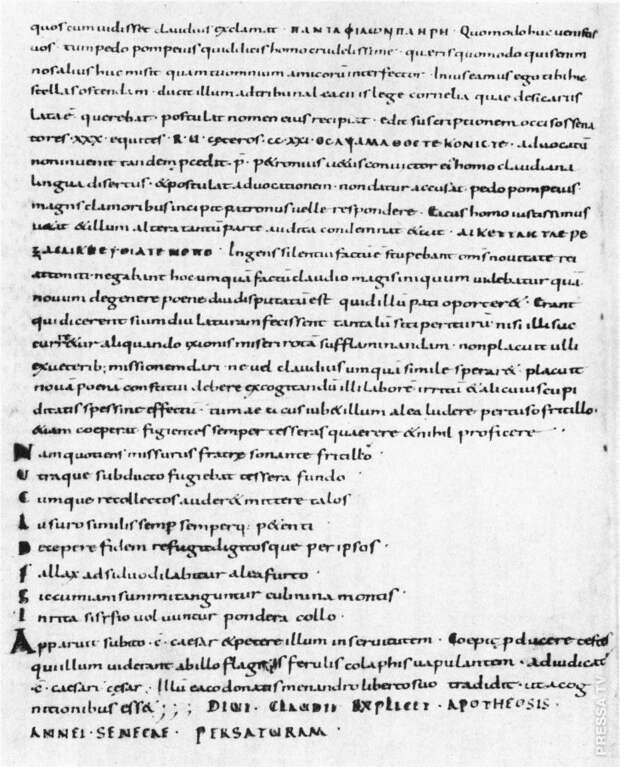 quos cum uidisset claudius exclamat · ΠΑΝΤΑ ΦΙΛΩΝ ΠΛΗΡΗ · Quomodo huc uenistis
uos · tum pedo pompeius quid dicis homo crudelissime · quaeris quomodo quis enim
nos alius huc misit quam tu omnium amicorum interfector · In ius eamus ego tibi hic
sellas ostendam · ducit illum ad tribunal eaci is lege cornelia quae de sicariis
lata ē · querebat · postulat nomen eius recipiat · edit suscriptionem occisos sena
tores · XXX · equites · R · U · ceteros · CC · XXI · advocatū
non inuenit tandem pcedit · p · p&ronius uetus conuictor ei homo claudiana
lingua disertus · & postulat aduocationem · non datur accusat · pedo pompeius
magnis clamoribus incipit patronus uelle respondere · Eacus homo iustissimus
uetat & illum altera tantū parte audita condemnat & ait ·
Ingens silentiū factū ē stupebant oms nouitate rei
attoniti · negabant hoc umquā factū claudio magis iniquum uidebatur quā
nouum de genere poene diu disputatū est quid illū pati oporter& · Erant
qui dicerent sium diu laturam fecissent tantalū siti periturū nisi illi suc
curreretur aliquando exionis miseri rotā sufflaminandam · non placuit ulli
ex ueterib; missionem dari · ne uel claudius umquā simile sperar& placuit
nouā poenā constitui debere excogitandū illi laborē irritū & alicuius cupi
ditatis spessine effectu · tum aeacus iub& illum alea ludere pertuso fritillo ·
& iam coeperat fugientes semper tesseras quaerere & nihil proficere
Nam quotiens missurus erat resonante fritillo
utraque subducto fugiebat tessera fundo
cumque recollectos auder& mittere talos
lusuro similis semp semperq; p&enti
decepere fidem refugit digitosque per ipsos ·
fallax adsiduo dilabitur alea furto
sic cum iam summi tanguntur culmina montis ·
Inrita sisifio uoluuntur pondera collo ·
Apparuit subito · c · caesar & petere illum in seruitutem · Coepit pducere testes
qui illum uiderant ab illo flagris ferulis colaphis uapulantem · adiudicat
· c · caesari cesar · Illū eaco donat is menandro liberto suo tradidit · ut a cog
nitionibus esset ; ; ; DIUI · CLAUDII EXPLICIT · APOTHEOSIS ·
ANNEI · SENECAE · PER SATURAM ·
PRESSA TV